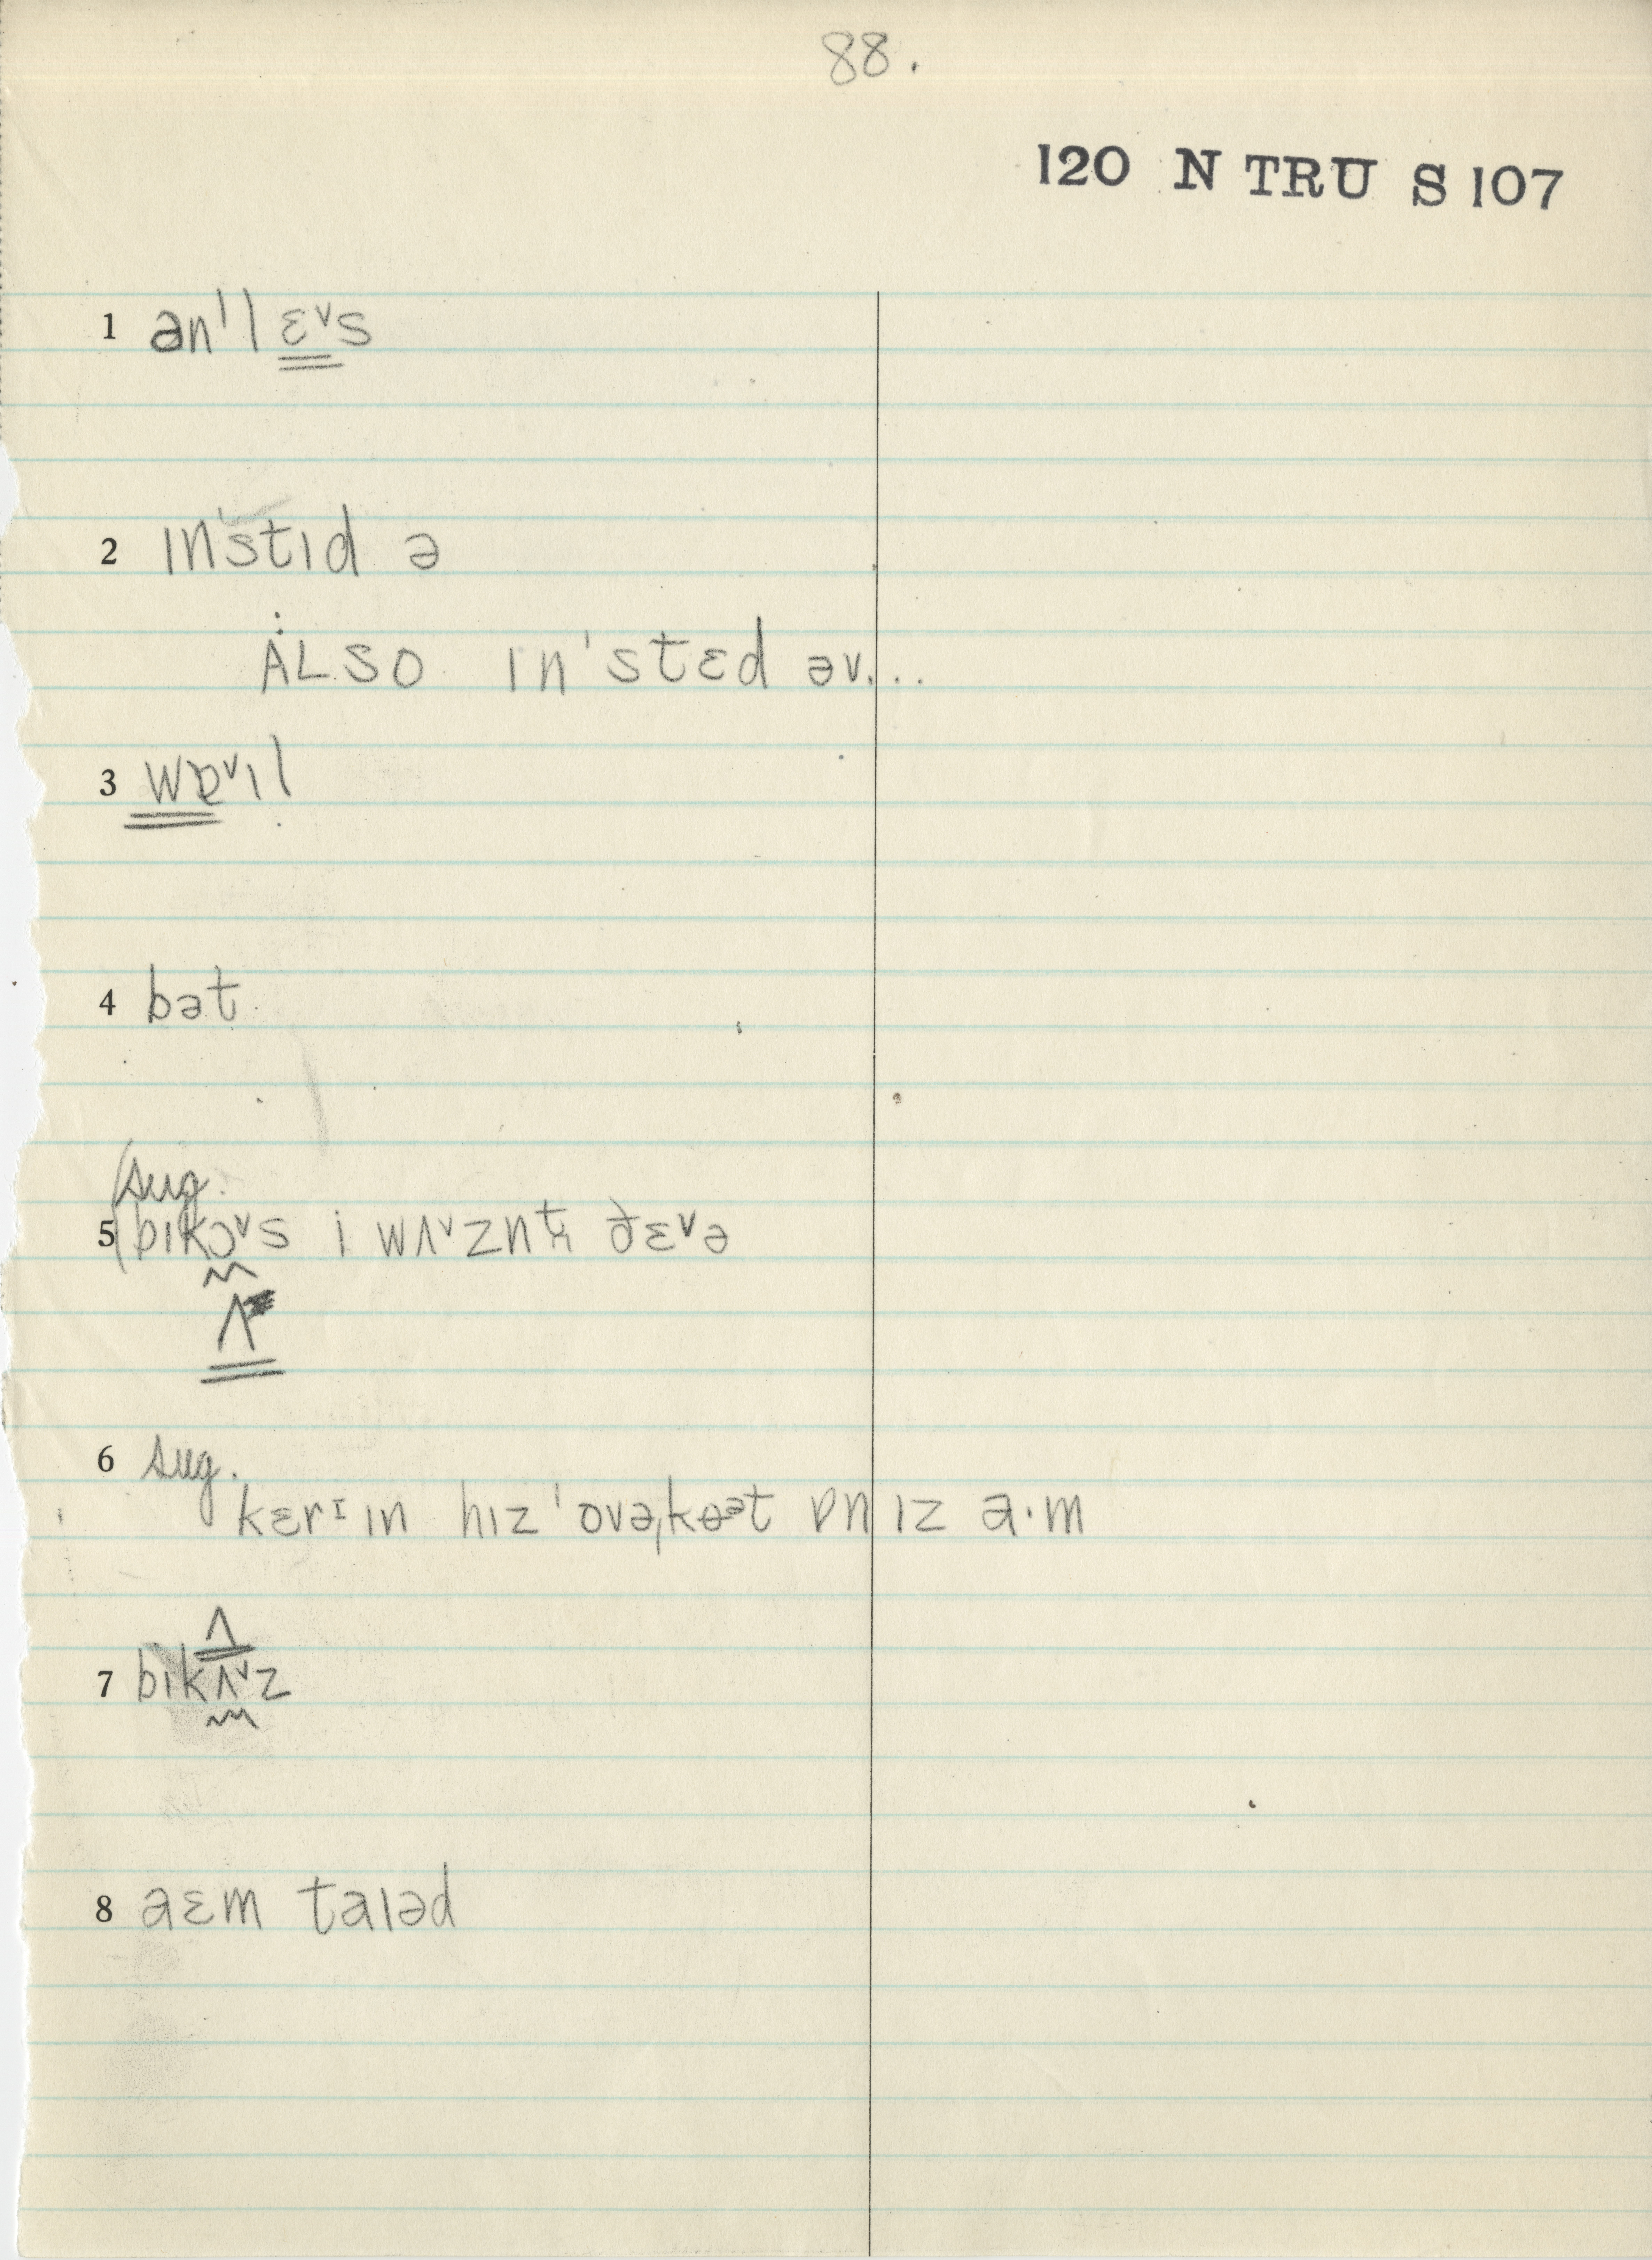 88.
120 N TRU S 107
1 ən'lɛᵛs
2 ɪn'stɪd ə
ALSO ɪn'stɛd əv...
3 wɒᵛɪl
4 bət
sug.
5 (bɪkɔᵛs i wʌᵛznt ðɛᵛə
ʌ
6 sug.
kɛrᶦɪn hɪz 'ovəˌkɵᵊt ɒn ɪz a·m
ʌ
7 bɪkʌᵛz
8 aɛm taɪəd